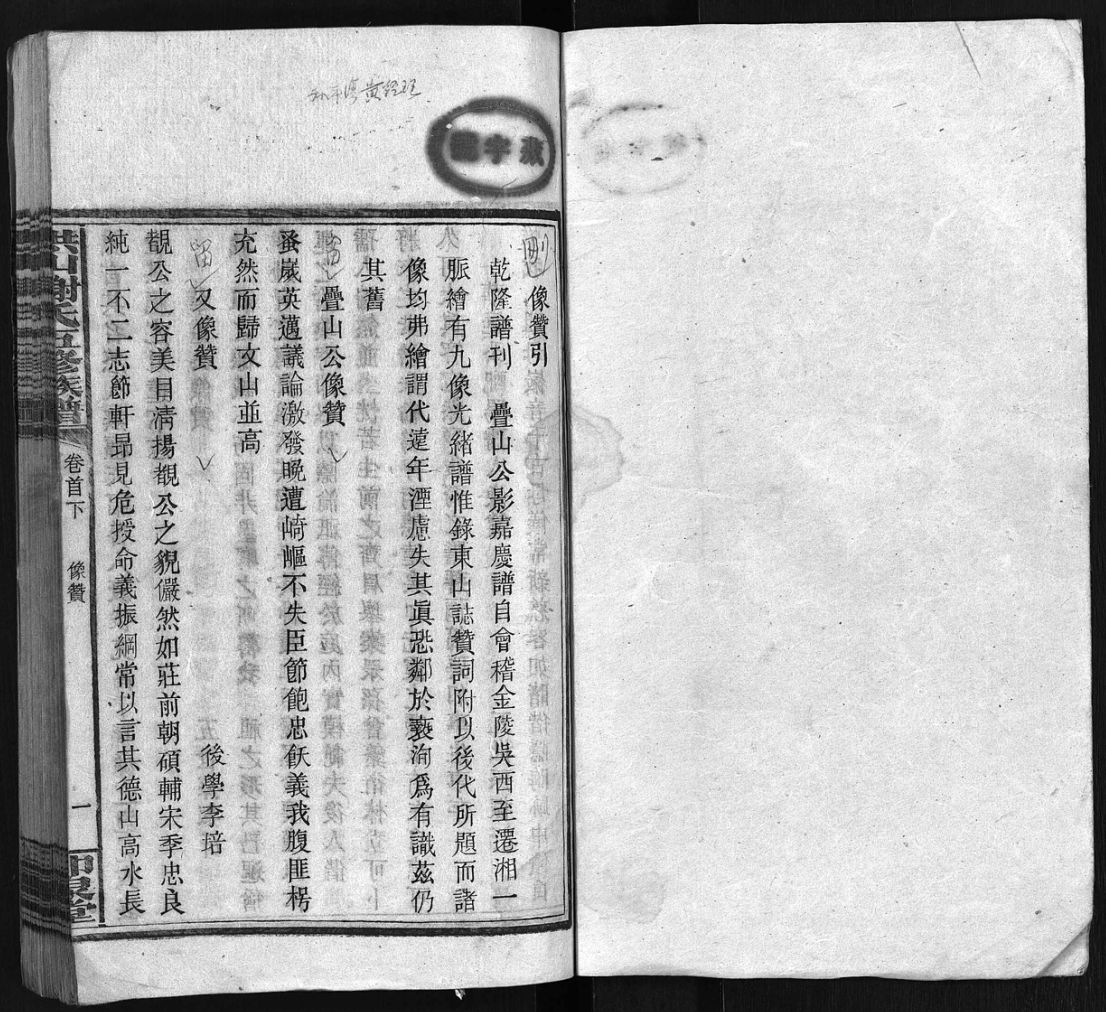 藏字號
刪 像贊引
乾隆譜刊 疊山公影嘉慶譜自會稽金陵吳西至遷湘一
脈繪有九像光緒譜惟錄東山誌贊詞附以後代所題而諸
像均弗繪謂代遠年湮慮失其眞恐鄰於褻洵爲有識茲仍
其舊
留 疊山公像贊
蚤嵗英邁議論激發晚遭崎嶇不失臣節飽忠飫義我腹匪枵
充然而歸文山並高
留 又像贊 後學李培
覩公之容美目清揚覩公之貌儼然如莊前朝碩輔宋季忠良
純一不二志節軒昻見危授命義振綱常以言其德山高水長
洪山謝氏五修族譜 卷首下 像贊 一